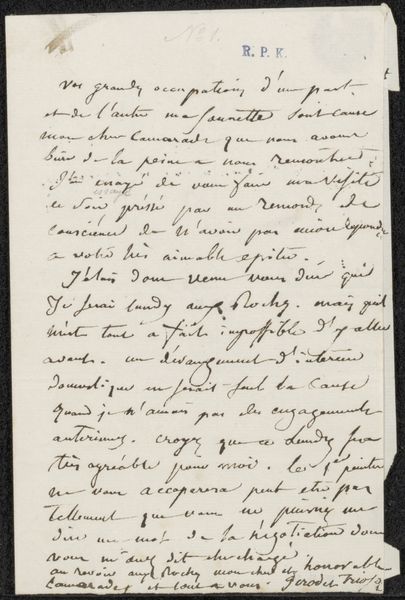 No 1.
R. P. K.
vos grandes occupations d'une part
et de l'autre ma sont cause
mon cher Camarade que nous avons
bien de la peine a nous rencontrer.
de vous faire ma visite
ce soir pressé par un remords de
conscience de n'avoir pas encore repondu
a votre très aimable epitre.
J'étais donc venu vous dire que
Je serai lundy aux Rochy. mais qu'il
m'est tout à fait impossible d'y aller
avant. un dérangement d'interieur
domestique en serait seul la cause
quand je n'aurais pas des engagements
anterieurs. croyez que ce Lundy sera
très agréable pour moi. le 1er peintre
ne vous accaparera peut etre pas
tellement que vous ne puissiez me
dire un mot de la négotiation dont
vous m'avez dit chargé
au revoir aux Rochy mon cher et honorable
Camarade et tout a vous. Girodet